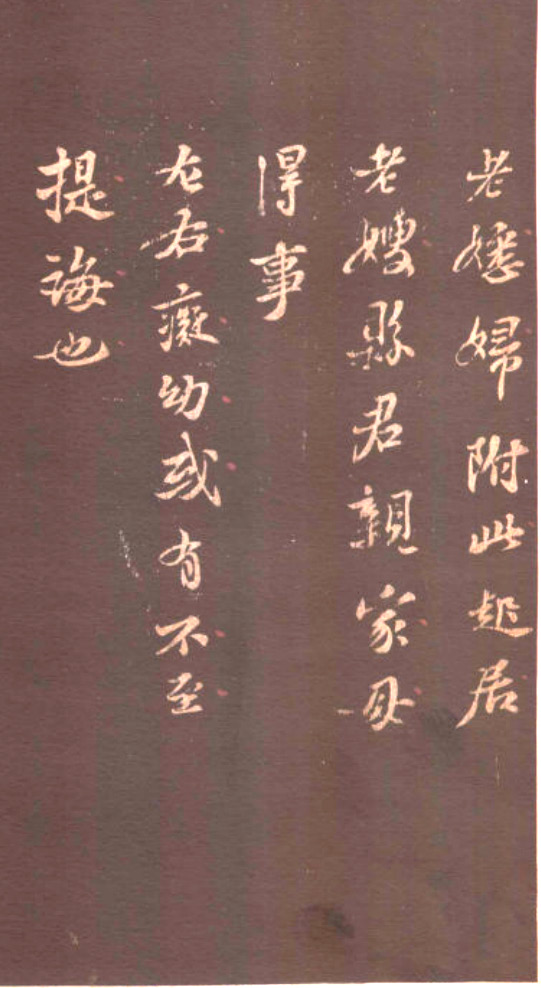 老嬸婦附此起居
老嫂縣君親家母
得事
左右癡幼或有不至
提誨也